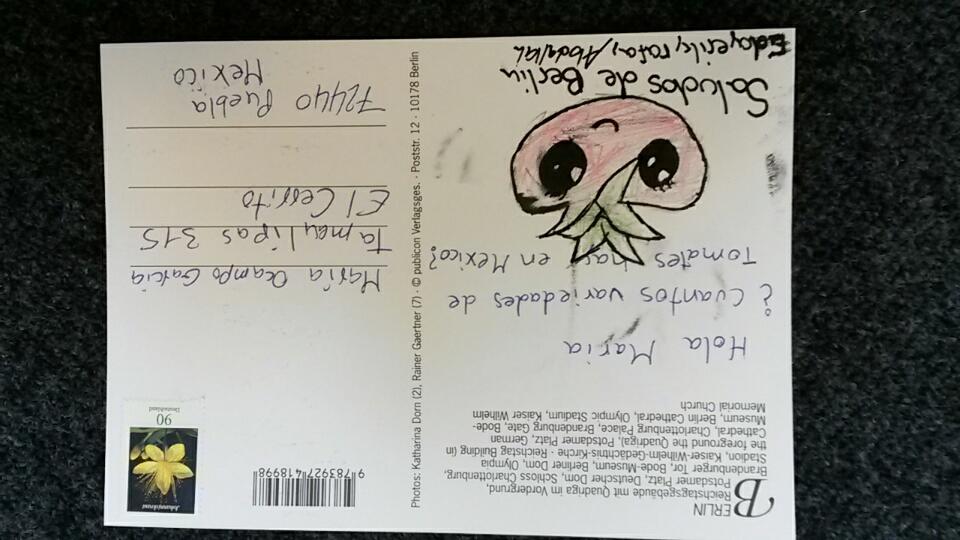 BERLIN
Reichstagsgebäude mit Quadriga im Vordergrund,
Potsdamer Platz, Deutscher Dom, Schloss Charlottenburg,
Brandenburger Tor, Bode-Museum, Berliner Dom, Olympia
Stadion, Kaiser-Wilhelm-Gedächtnis-Kirche · Reichstag Building (in
the foreground the Quadriga), Potsdamer Platz, German
Cathedral, Charlottenburg Palace, Brandenburg Gate, Bode-
Museum, Berlin Cathedral, Olympic Stadium, Kaiser Wilhelm
Memorial Church
Hola Maria
¿Cuantos variedades de
Tomates hay en Mexico?
Saludos de Berlin
Photos: Katharina Dorn (2), Rainer Gaertner (7) · © publicon Verlagsges. · Poststr. 12 · 10178 Berlin
9 783927 418998
Johanniskraut
90
Deutschland
María Ocampo García
Tamaulipas 315
El Cerrito
72440 Puebla
Mexico